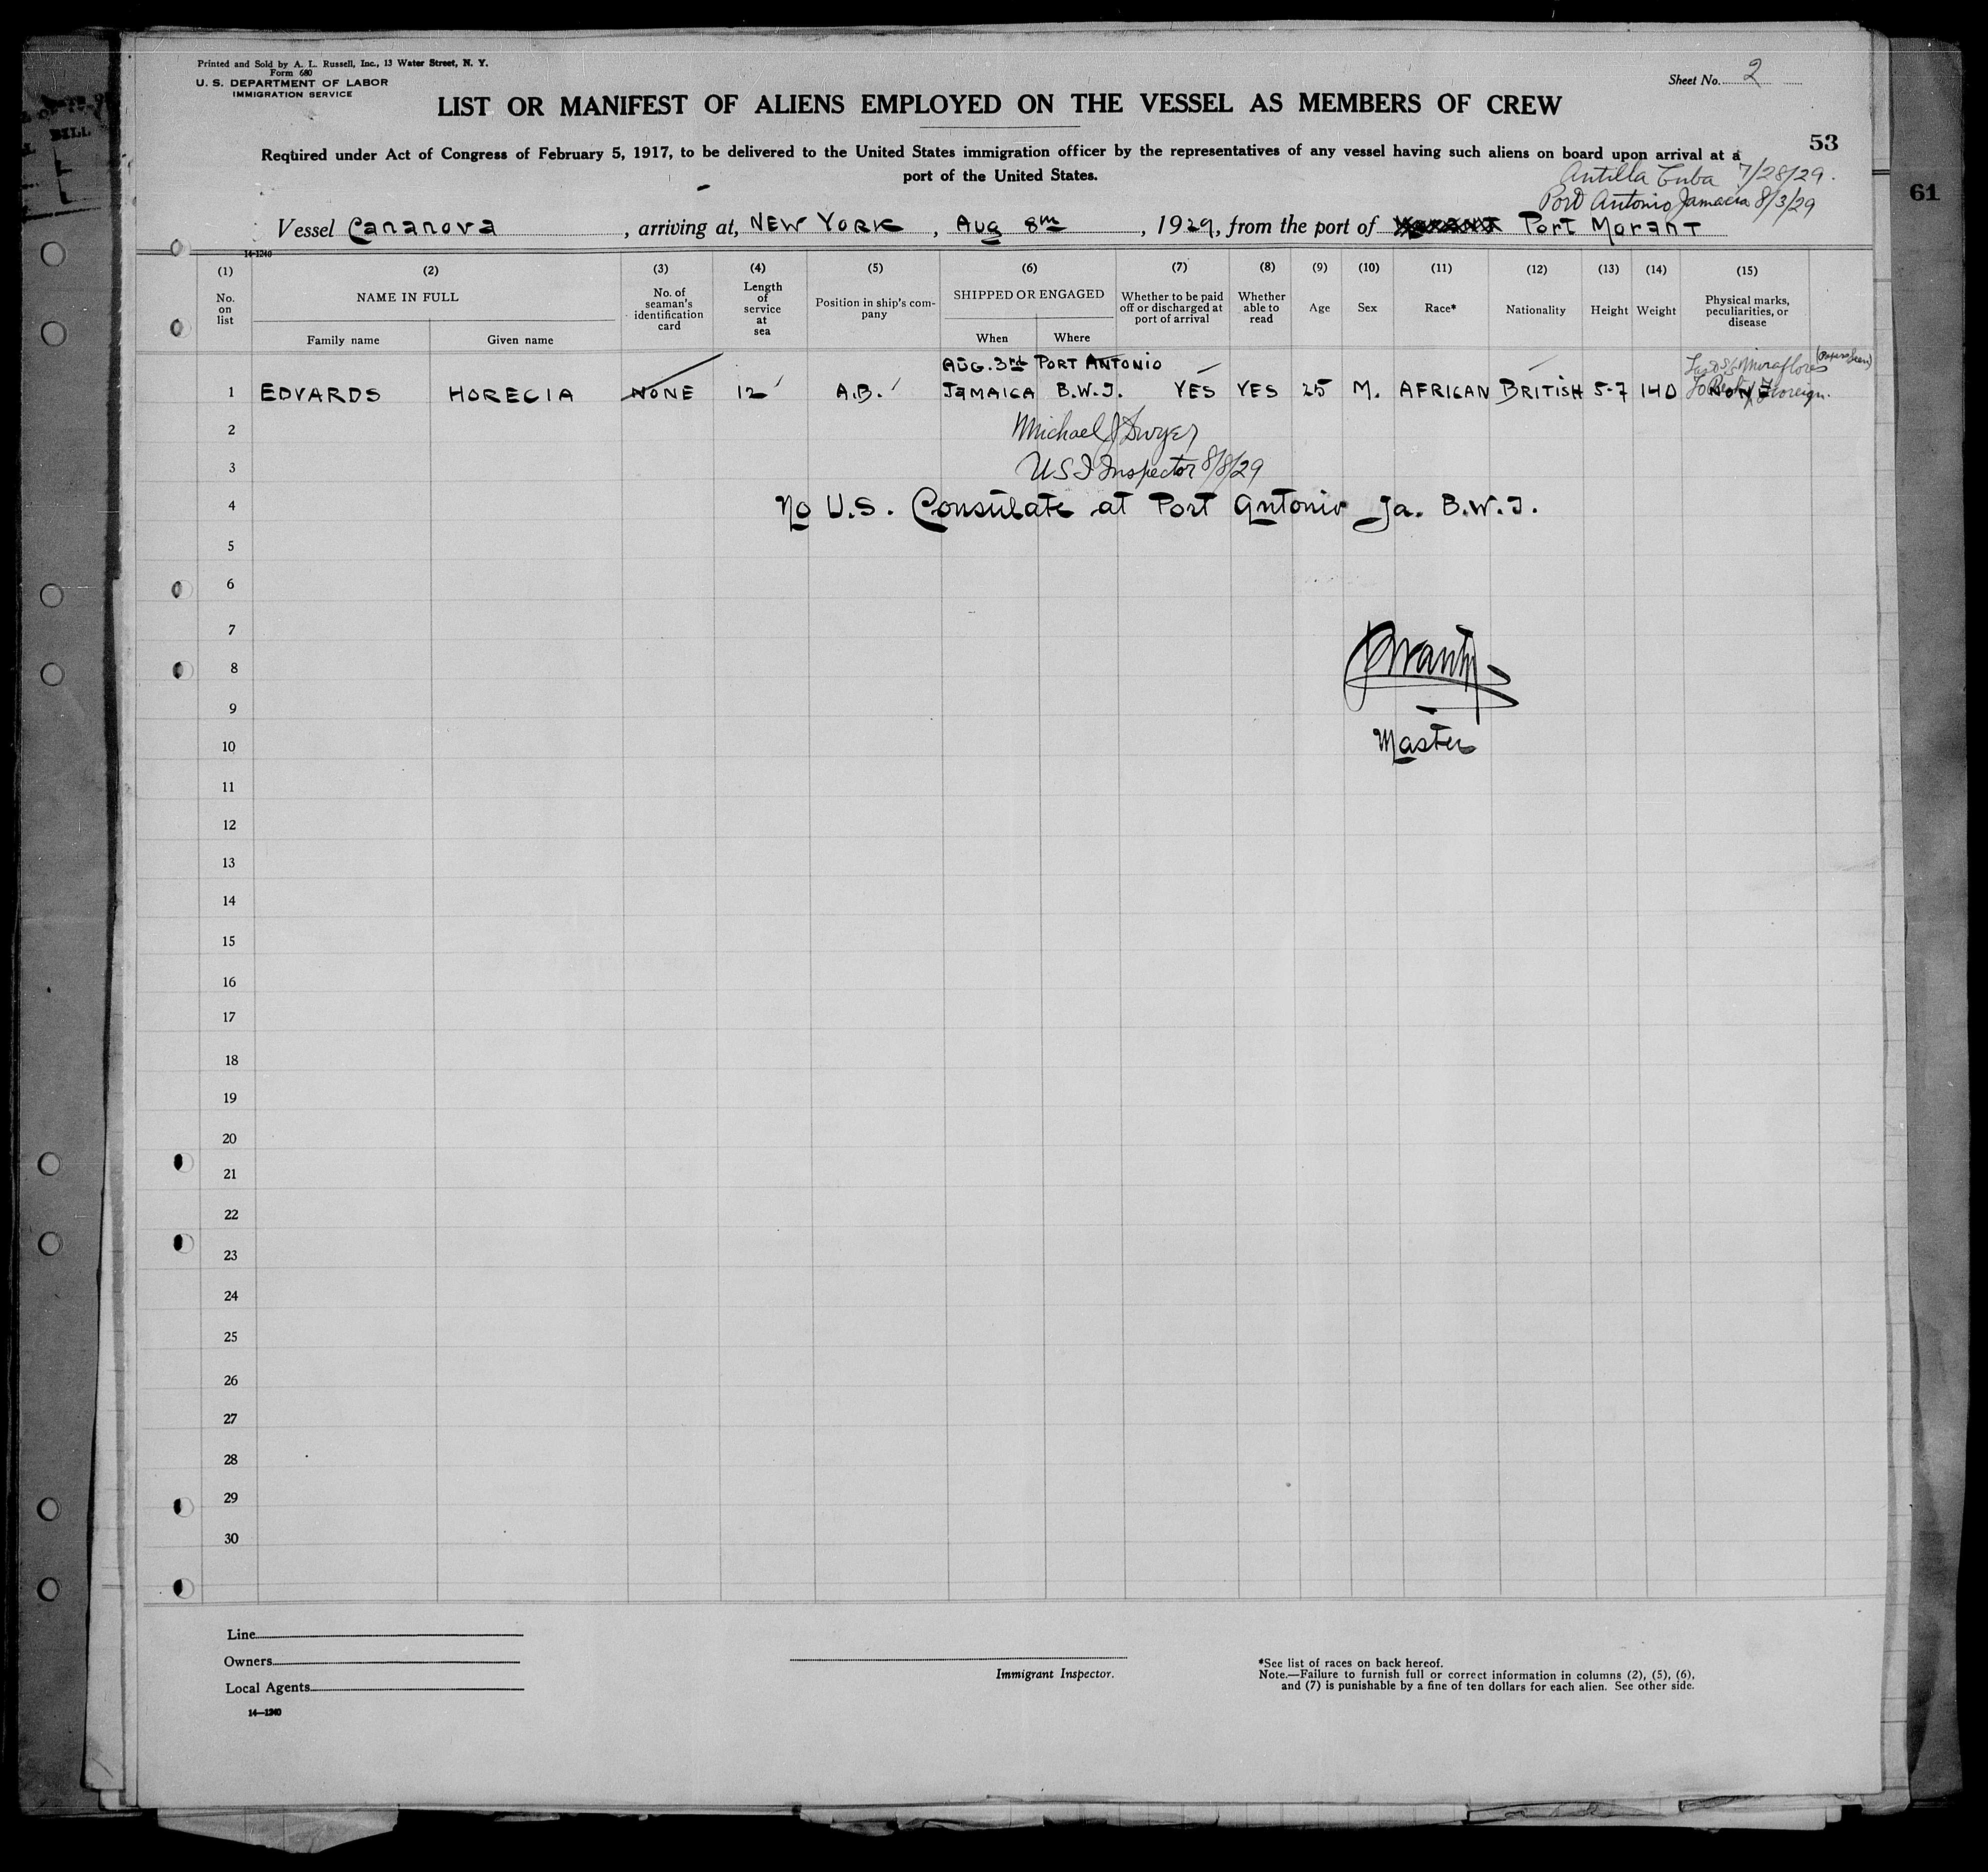 Printed and Sold by A. L. Russell, Inc., 13 Water Street, N. Y.
Form 680
U. S. DEPARTMENT OF LABOR
IMMIGRATION SERVICE
Sheet No. 2
LIST OR MANIFEST OF ALIENS EMPLOYED ON THE VESSEL AS MEMBERS OF CREW
53
Required under Act of Congress of February 5, 1917, to be delivered to the United States immigration officer by the representatives of any vessel having such aliens on board upon arrival at a
port of the United States.
Antilla Cuba 7/28/29.
Port Antonio Jamacia 8/3/29
61
BILL
Vessel Cananova, arriving at, NEW YORK, Aug 8th, 1929, from the port of Port Morant
14-1240
(1) (2) (3) (4) (5) (6) (7) (8) (9) (10) (11) (12) (13) (14) (15)
No. on list
NAME IN FULL
Family name
Given name
No. of seaman's identification card
Length of service at sea
Position in ship's company
SHIPPED OR ENGAGED
When
Where
Whether to be paid off or discharged at port of arrival
Whether able to read
Age
Sex
Race*
Nationality
Height
Weight
Physical marks, peculiarities, or disease
AUG. 3rd PORT ANTONIO
Last SS Miraflores (Papers Seen)
1 EDVARDS HORECIA NONE 12 A.B. JAMAICA B.W.I. YES YES 25 M. AFRICAN BRITISH 5-7 140 NONE
To Reship Foreign.
2 Michael J Dwyer
3 USI Inspector 8/8/29
4 No U.S. Consulate at Port Antonio Ja. B.W.I.
5
6
7
8
9
10 Master
11
12
13
14
15
16
17
18
19
20
21
22
23
24
25
26
27
28
29
30
Line
Owners
Local Agents
14—1240
Immigrant Inspector.
*See list of races on back hereof.
Note.—Failure to furnish full or correct information in columns (2), (5), (6),
and (7) is punishable by a fine of ten dollars for each alien. See other side.